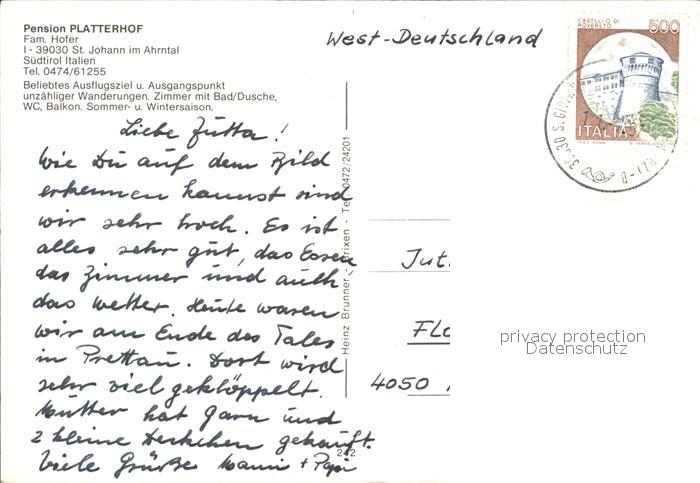 Pension PLATTERHOF
Fam. Hofer
I - 39030 St. Johann im Ahrntal
Südtirol Italien
Tel. 0474/61255
Beliebtes Ausflugsziel u. Ausgangspunkt
unzähliger Wanderungen. Zimmer mit Bad/Dusche,
WC, Balkon. Sommer- u. Wintersaison.
West-Deutschland
CASTELLO DI
ROVERETO
500
ITALIA
Liebe Jutta!
Wie Du auf dem Bild
erkennen kannst sind
wir sehr hoch. Es ist
alles sehr gut, das Essen
das Zimmer und auch
das Wetter. Heute waren
wir am Ende des Tales
in Prettau. Dort wird
sehr viel geklöppelt.
Mutter hat Garn und
2 kleine Deckchen gekauft.
Viele Grüße Mami + Papi
Heinz Brunner - Brixen - Tel. 0472/24201
242
Jut
Flo
4050
privacy protection
Datenschutz